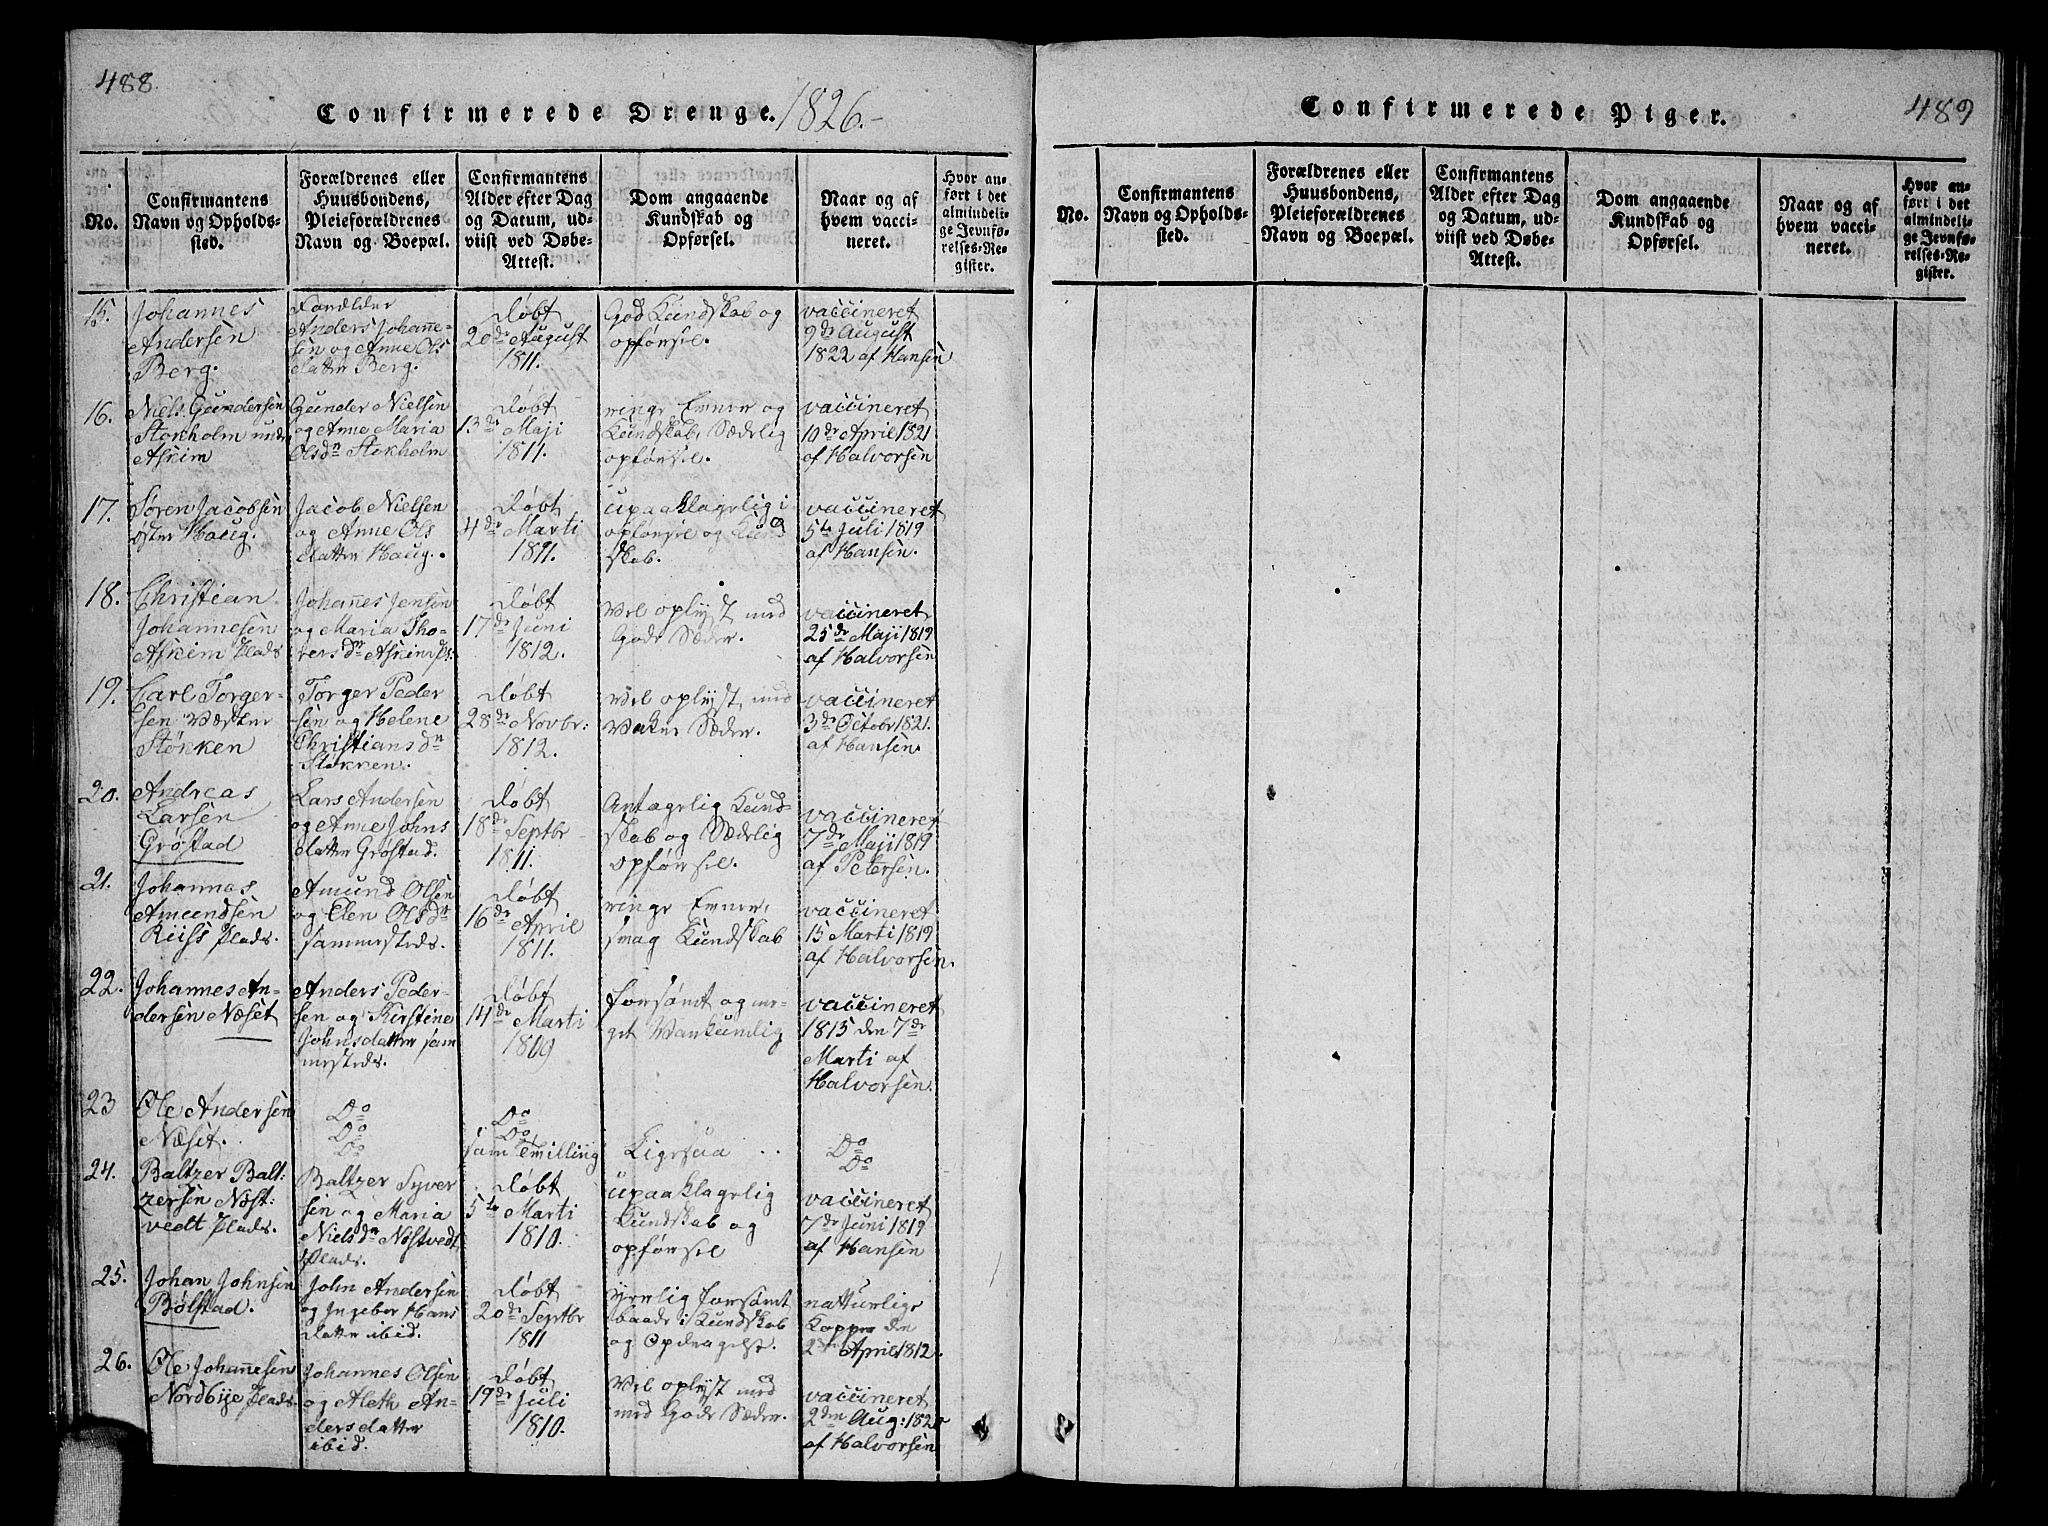 488
Confirmerede Drenge. 1826.-
No.
Confirmantens
Navn og Opholds-
sted.
Forældrenes eller
Huusbondens,
Pleieforældrenes
Navn og Boepæl.
Confirmantens
Alder efter Dag
og Datum, ud-
viist ved Døbe-
Attest.
Dom angaaende
Kundskab og
Opførsel.
Naar og af
hvem vacci-
neret.
Hvor an-
ført i det
almindeli-
ge Jevnfø-
relses-Re-
gister.
15.
Johannes
Andersen
Berg.
Forældre
Anders Johanne-
sen og Anne Ols
datter Berg.
Døbt
20de August
1811.
God Kundskab og
opførsel.
vaccineret
9de August
1822 af Hansen
16.
Niels Gundersen
Stokholm under
Askim
Gunder Nielsen
og Anne Maria
Olsdn Stokholm
Døbt
13de Maji
1811.
ringe Evner og
Kundskab, Sædelig
opførsel.
vaccineret
10de April 1821
af Halvorsen
17.
Søren Jacobsen
øster Haug.
Jacob Nielsen
og Anne Ols
datter Haug.
Døbt
4de Marti
1811.
upaaklagelig i
opførsel og Kund
skab.
vaccineret
5te Juli 1819
af Hansen.
18.
Christian
Johannesen
Askim Plads
Johannes Jensen
og Maria Tho-
rersdn Askim Ps:
Døbt
17de Juni
1812.
Vel oplyst med
Gode Sæder.
vaccineret
25de Maji 1819
af Halvorsen
19.
Carl Torger-
sen Væstre
Støkken
Torger Peder
sen og Helene
Christiansdn
Støkken.
Døbt
28de Novbr:
1812.
Vel oplyst, med
Vakre Sæder.
vaccineret
3de Octobr 1821.
af Hansen.
20.
Andreas
Larsen
Grøstad
Lars Andersen
og Anne Johns
datter Grøstad.
Døbt
18de Septbr
1811.
Antagelig Kund-
skab og Sædelig
opførsel.
vaccineret
7de Maji 1819
af Petersen.
21.
Johannes
Amundsen
Riiss Plads.
Amund Olsen
og Elen Olsdn
sammesteds.
Døbt
16de April
1811.
ringe Evner,
smag Kundskab
vaccineret
15 Marti 1819
af Halvorsen.
22.
Johannes An-
dersen Næset
Anders Peder-
sen og Kirstine
Johnsdatter sam
mesteds.
Døbt
14de Marti
1809
forsømt og me-
get Vankundig
vaccineret
1815 den 7de
Marti af
Halvorsen.
23
Ole Andersen
Næset.
Do
Do
Do
Do
Do
sam Tvilling
Ligesaa
Do
Do
24.
Baltzer Balt:
zersen Nøst-
vedt Plads.
Baltzer Syver
sen og Maria
Nielsdn Nøstvedt
Plads.
Døbt
5te Marti
1810.
upaaklagelig
Kundskab og
opførsel
vaccineret
7de Juni 1819
af Hansen
25.
Johan Johnsen
Bølstad.
John Andersen
og Ingebor Hans
datter ibid.
Døbt
20de Septbr
1811
yrelig forsømt
baade i Kundskab
og Opdragelse.
natturlige
Kopper den
2den April 1812.
26.
Ole Johannesen
Nordbye Plads.
Johannes Olsen
og Aleth An-
dersdatter
ibid.
Døbt
19de Juli
1810.
Vel oplyst med
med Gode Sæder.
vaccineret
2den Aug: 1820
af Halvorsen
Confirmerede Piger.
489
No.
Confirmantens
Navn og Opholds-
sted.
Forældrenes eller
Huusbondens,
Pleieforældrenes
Navn og Boepæl.
Confirmantens
Alder efter Dag
og Datum, ud-
viist ved Døbe-
Attest.
Dom angaaende
Kundskab og
Opførsel.
Naar og af
hvem vacci-
neret.
Hvor an-
ført i det
almindeli-
ge Jevnfø-
relses-Re-
gister.